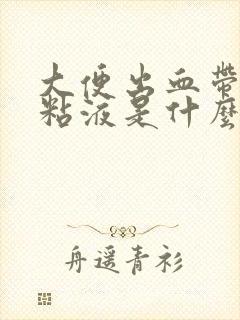 大便出血带
粘液是什麼
舟遥青衫